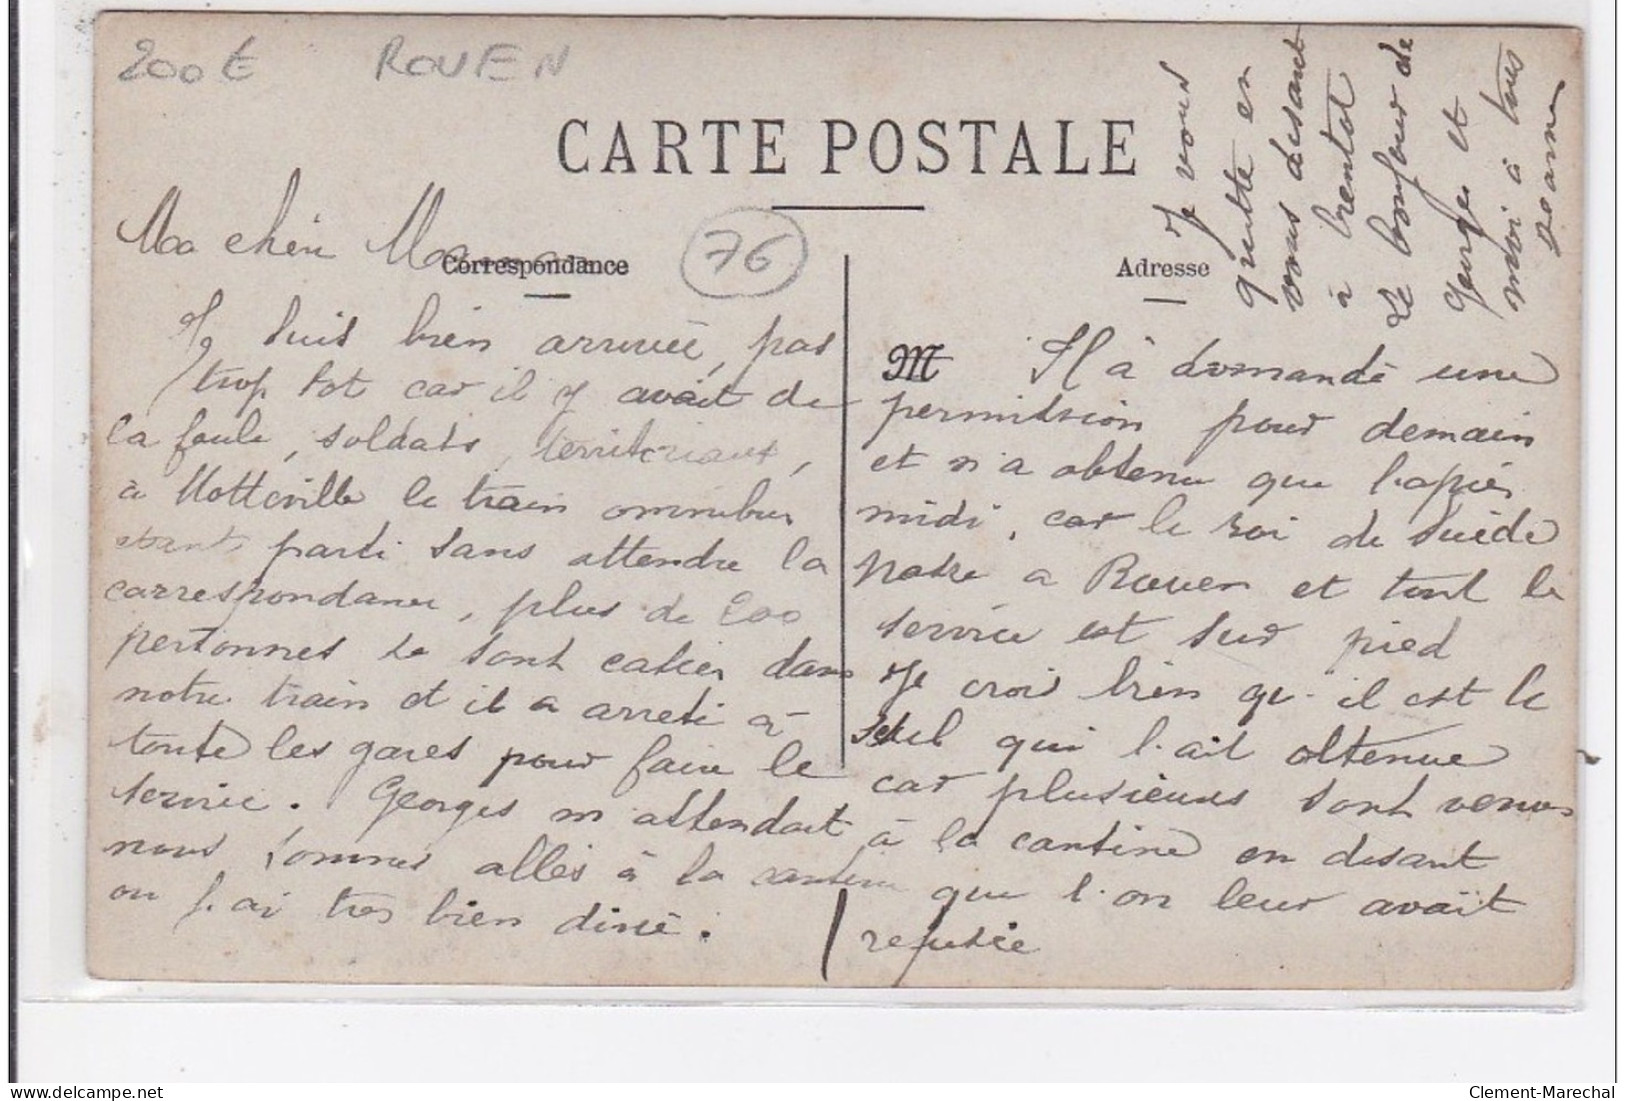 200 €
ROUEN
CARTE POSTALE
Correspondance
76
Adresse
Ma chèr Maman
Je suis bien arrivée, pas
trop tot car il y avait de
la foule, soldats, territoriaux,
à Motteville le train omnibus
étant parti sans attendre la
correspondance, plus de 200
personnes se sont casier dans
notre train et il a arreté à
toute les gares pour faire le
service. Georges m'attendait
nous sommes allés à la cantine
ou j'ai très bien diné.
M
Il à demandé une
permission pour demain
et n'a obtenu que l'après
midi, car le roi de Suède
passe a Rouen et tout le
service est sur pied
Je crois bien qu'il est le
seul qui l'ait obtenue
car plusieurs sont venus
à la cantine en disant
que l'on leur avait
refusée
Je vous
quitte en
vous disant
à bientot
Le bonjour de
Georges et
moi à tous
Jeanne
delcampe.net
Clement-Marechal